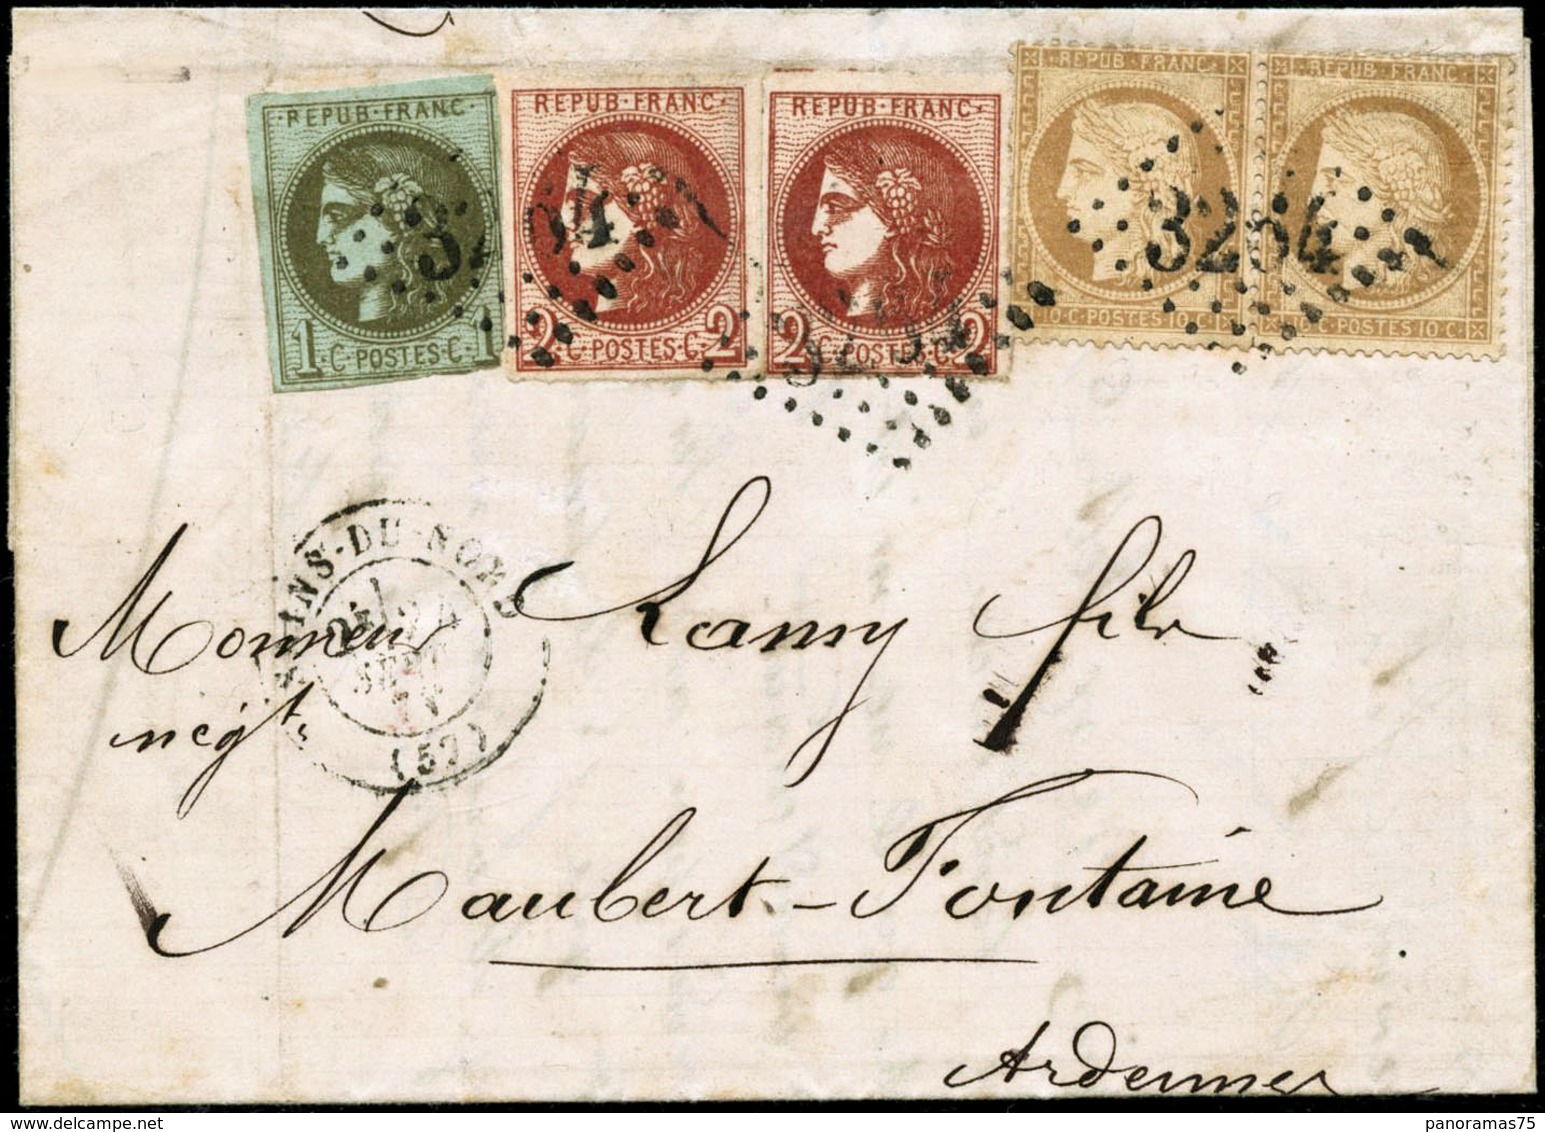 REPUB·FRANC
1 C·POSTES·C 1
REPUB·FRANC·
2 C·POSTES·C 2
REPUB·FRANC·
2 C·POSTES·C 2
REPUB FRANC
10 C·POSTES 10 C
REPUB FRANC
C·POSTES 10 C
3264
3264
INS·DU·NORD
SEPT
(57)
Monsieur Lamy fils
négt
Maubert-Fontaine
Ardennes
panoramas75